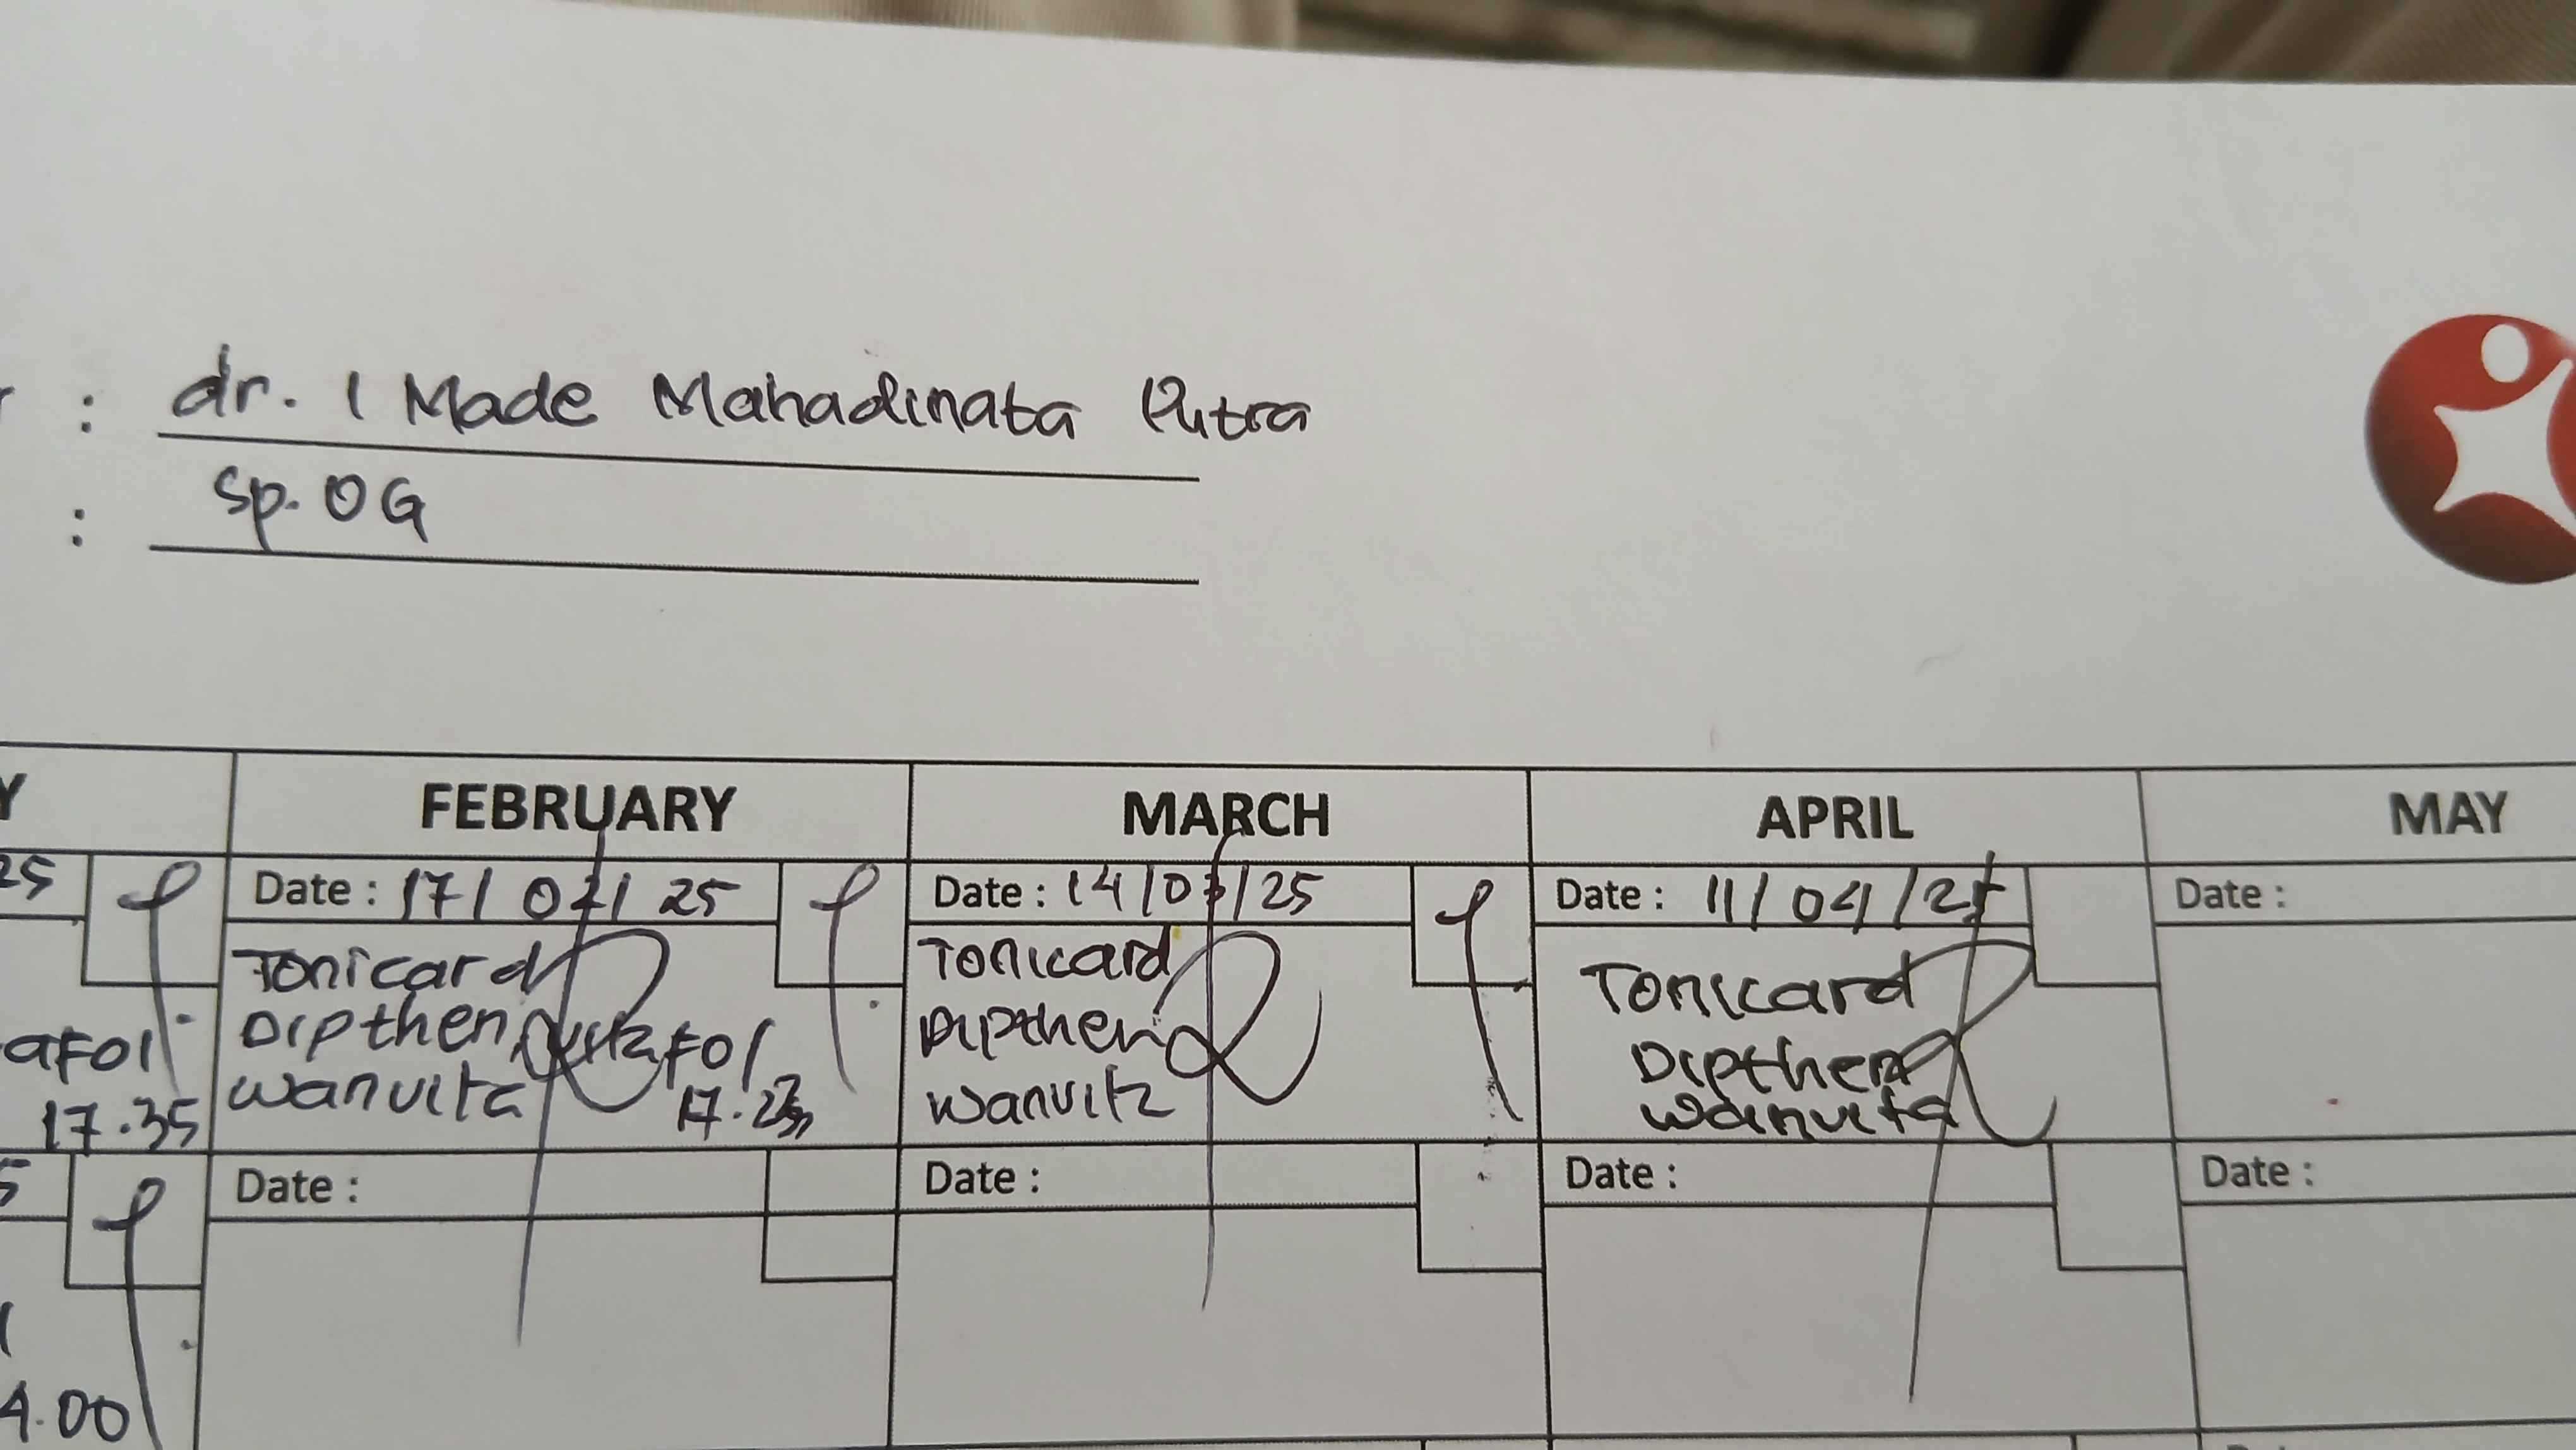 : dr. I Made Mahadinata Putra
: Sp. OG
Y FEBRUARY MARCH APRIL MAY
25 Date : 17/ 02/ 25 Date : 14/03/25 Date : 11/ 04/25 Date :
Tonicard Tonicard Tonicard
Dipthen Dipthen Dipthen
aFOl FOl
wanvita wanvita wanvita
17.35 17.23
5 Date : Date : Date : Date :
4.00